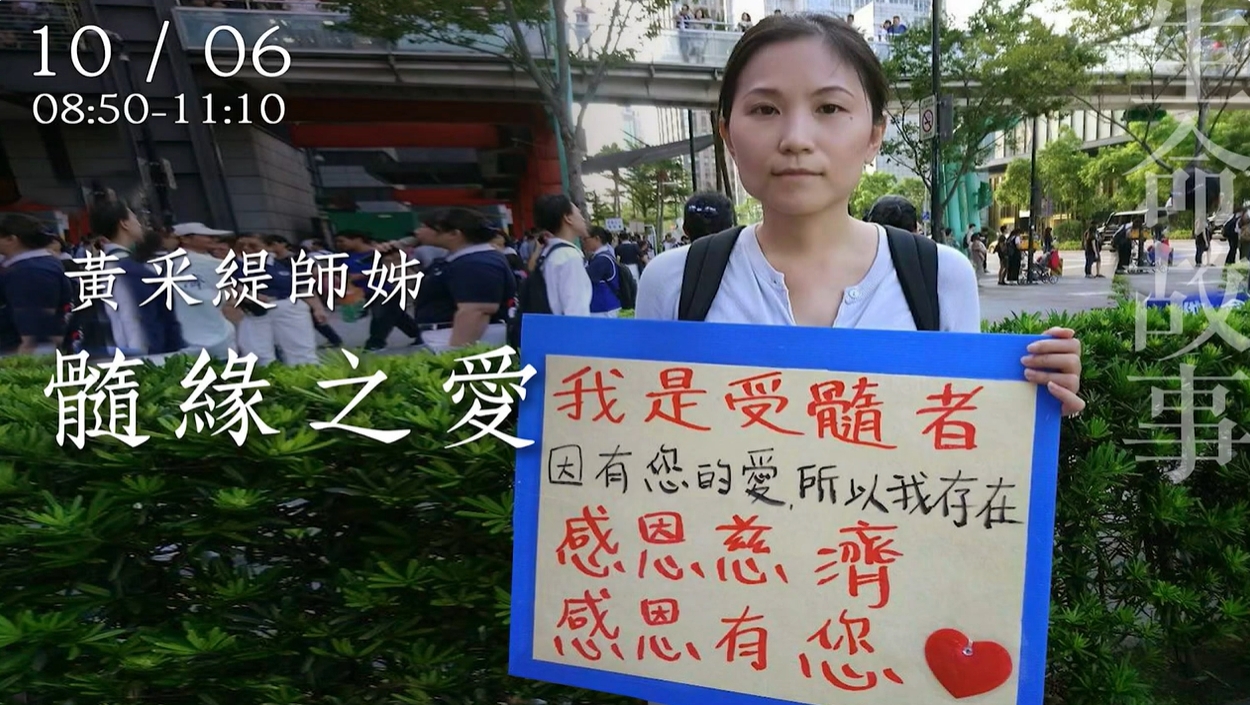 10 / 06
08:50-11:10
黃采緹師姊
髓緣之愛
我是受髓者
因有您的愛,所以我存在
感恩慈濟
感恩有您
生命故事